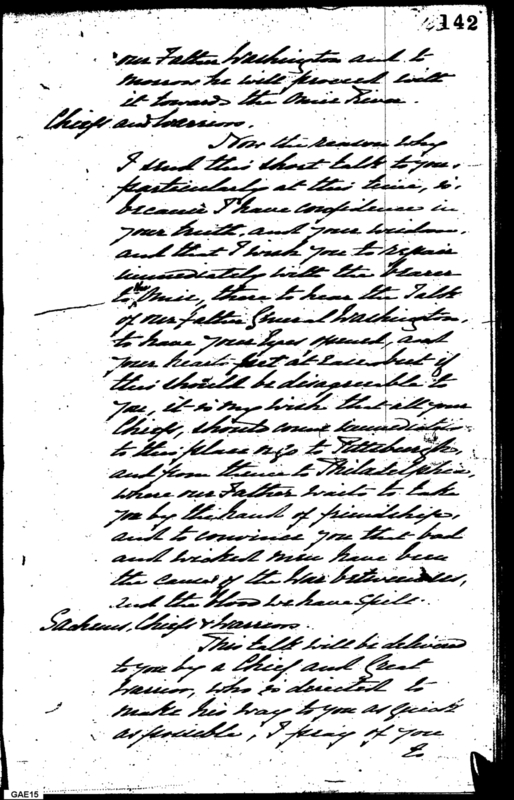 142
our Father Washington and to
morrow he will proceed with
it towards the Omie River.
Chiefs and Warriors,
Now the reason why
I send this short talk to you,
particularly at this time, is,
because I have confidence in
your truth, and your wisdom,
and that I wish you to repair
immediately with the bearer
to the Omie, there to hear the Talk
of our father General Washington,
to have your Eyes opened, and
your hearts set at Ease but if
this should be disagreeable to
you, it is my wish that all your
Chiefs, should come immediately
to this place or go to Pittsburgh,
and from thence to Philadelphia,
where our Father waits to take
you by the hand of friendship,
and to convince you that bad
and wicked men have been
the cause of the War between us,
and the blood we have spilt.
Sachems, Chiefs & Warriors.
This talk will be delivered
to you by a Chief and Great
Warrior, who is directed to
make his way to you as quick
as possible, I pray of you
to
GAE15